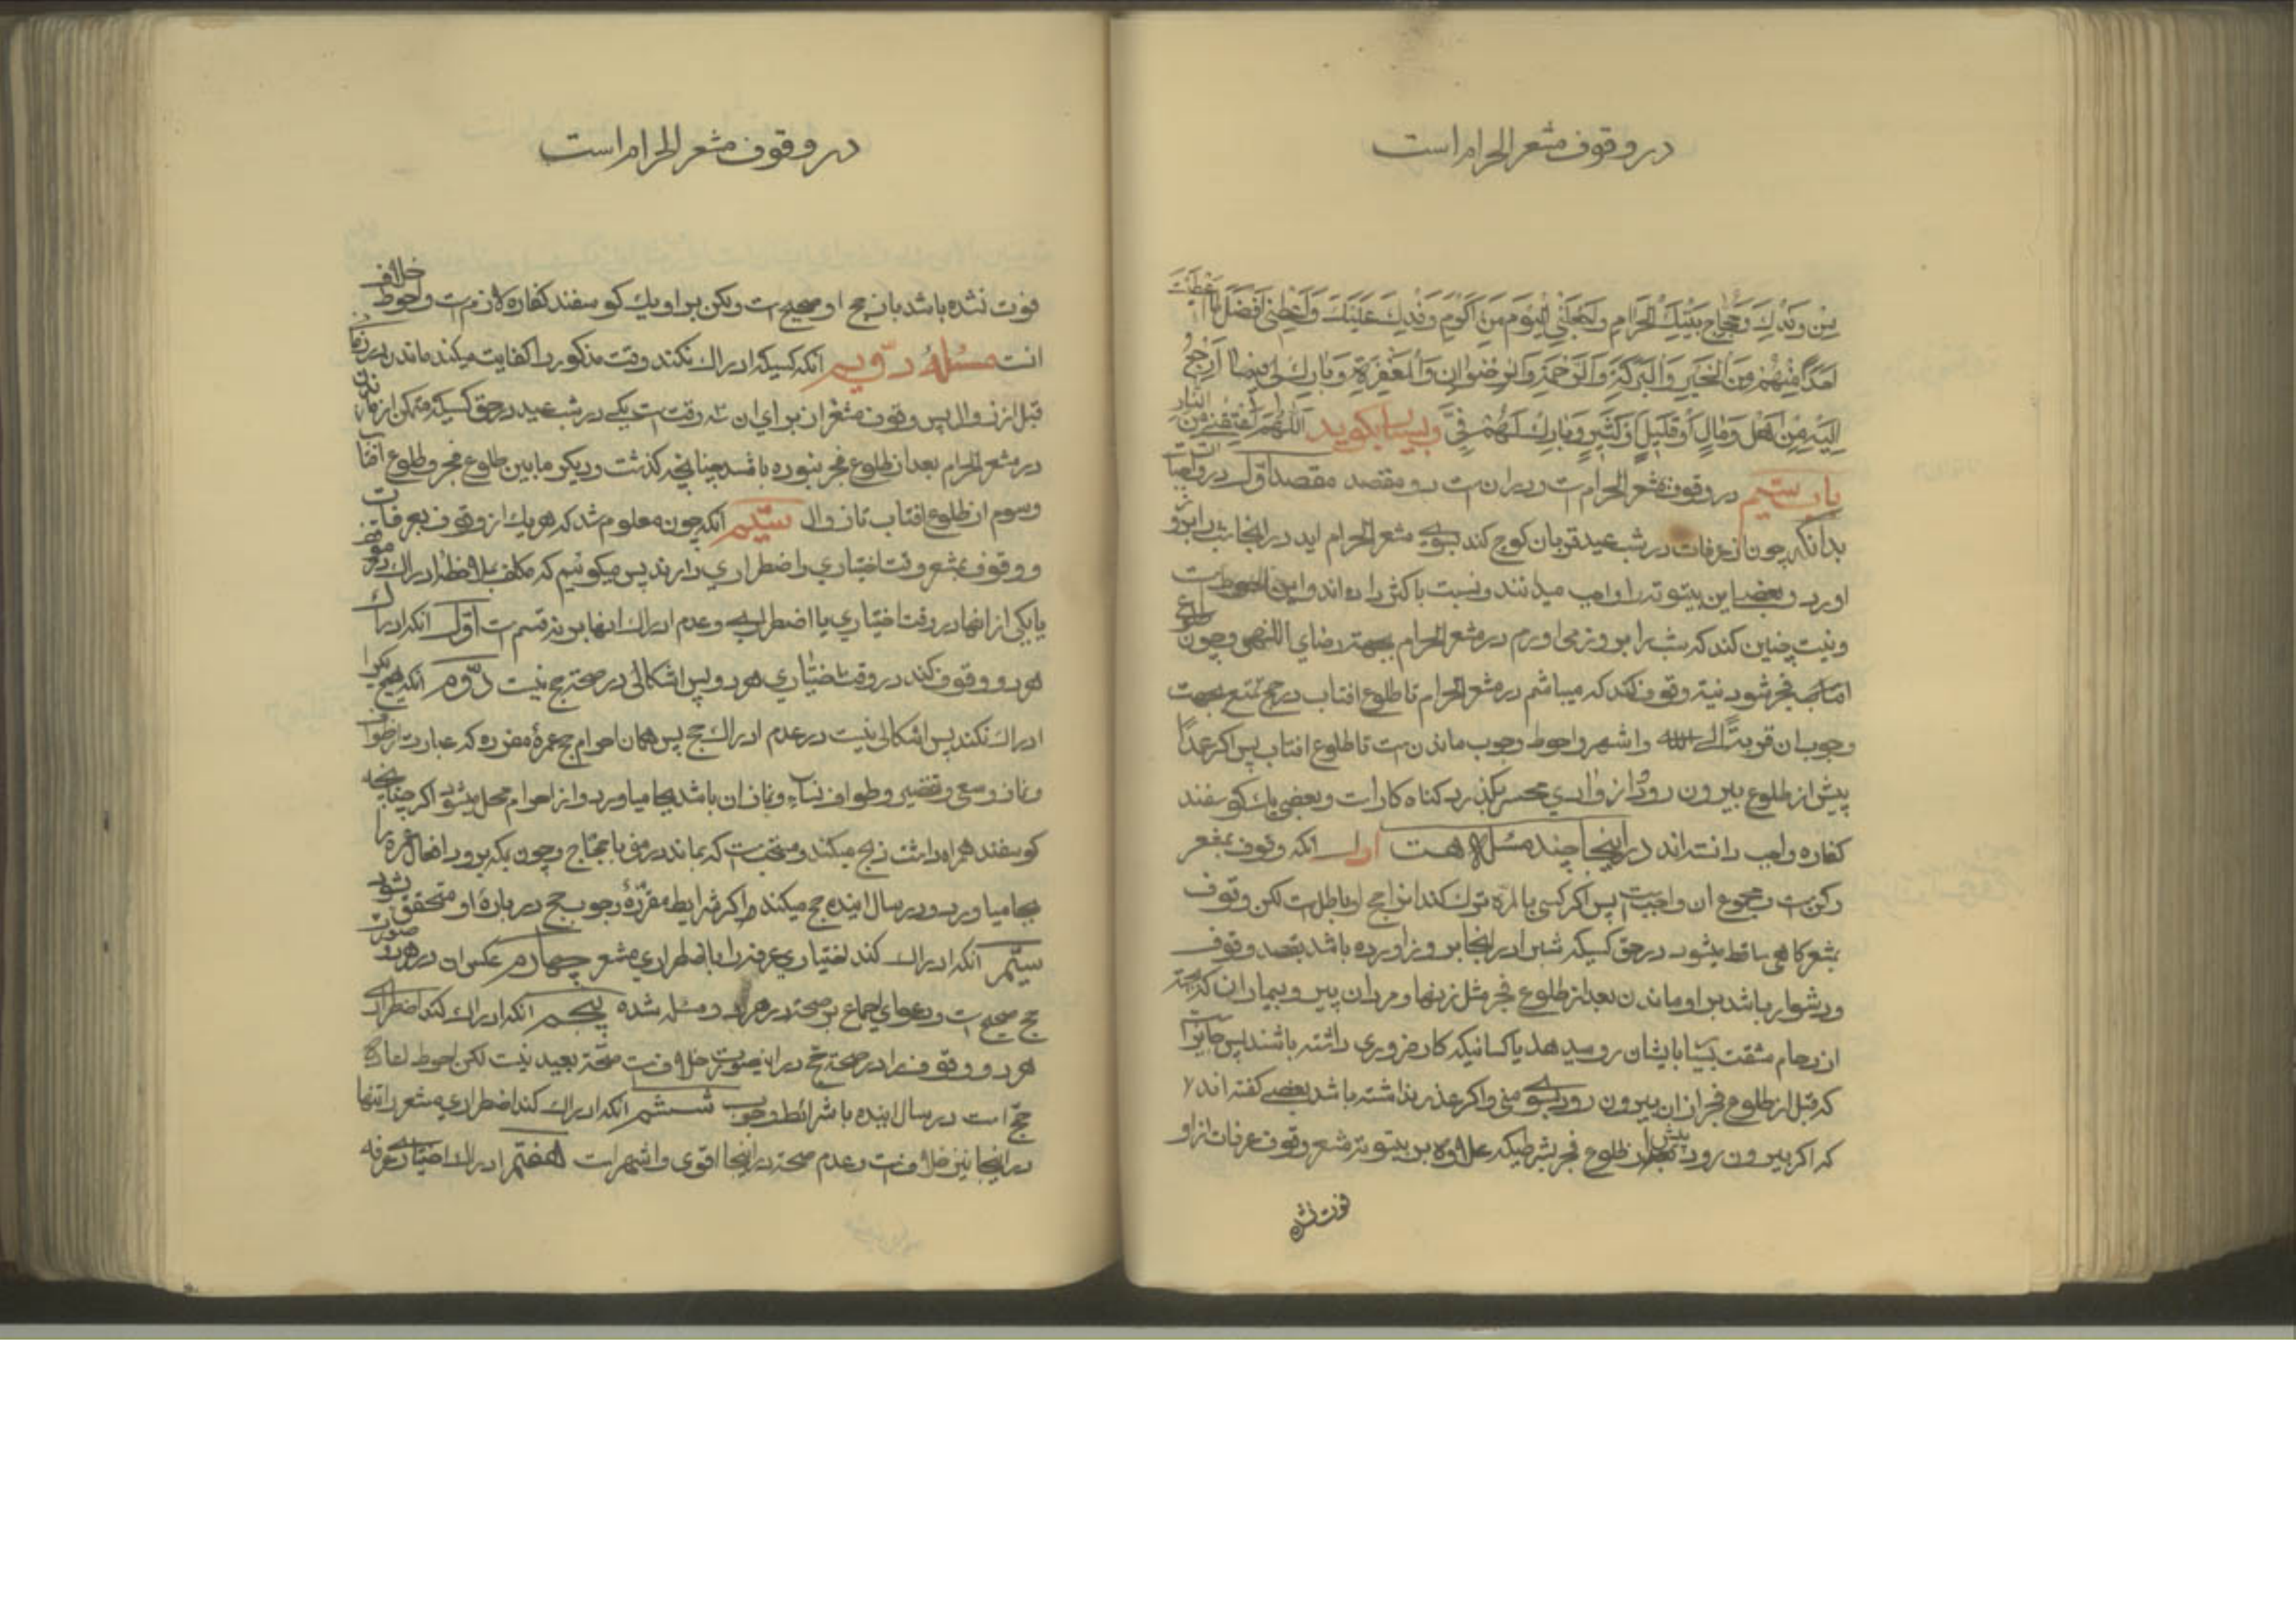 در وقوف مشعر الحرام است
مِن وَفْدِكَ وَحُجّاجِ بَيْتِكَ الحَرامِ وَاجْعَلْنِي اليَوْمَ مِنْ أَكْرَمِ وَفْدِكَ عَلَيْكَ وَأَعْطِنِي أَفْضَلَ مَا أَعْطَيْتَ
أَحَدًا مِنْهُمْ مِنَ الْخَيْرِ وَالْبَرَكَةِ وَالرَّحْمَةِ وَالرِّضْوَانِ وَالْمَغْفِرَةِ وَبَارِكْ لِي فِيمَا أَرْجِعُ
إِلَيْهِ مِنْ أَهْلٍ وَمَالٍ أَوْ قَلِيلٍ أَوْ كَثِيرٍ وَبَارِكْ لَهُمْ فِيَّ و بسیار بگوید اللّهُمَّ أَعْتِقْنِي مِنَ النّار
باب سیّم در وقوف مشعر الحرامست و در ان دو مقصد مقصد اوّل در واجبات
بدانکه چون از عرفات در شب عید قربان کوچ کند بسوی مشعر الحرام اید در انجا شب را بروز
اورد و بعضی این بیتوته را واجب میدانند و نسبت باکثر داده اند و این احوط است
و نیت چنین کند که شب را بروز می اورم در مشعر الحرام بجهة رضای اللهی و چون طلوع
فجر شود نیة وقوف کند که میباشم در مشعر الحرام تا طلوع افتاب در حج تمتع بجهت
وجوب ان قربةً الی الله و اشهر و احوط وجوب ماندنست تا طلوع افتاب پس اکر عمداً
پیش از طلوع بیرون رود از وادی محسر بکذرد کناه کار است و بعضی یك کوسفند
کفاره واجب دانسته اند در اینجا چند مسئله هست اول انکه وقوف بمشعر
رکن است و مجموع ان واجبست پس اکر کسی بالمرّه ترك کند انرا حج او باطلست لکن وقوف
بمشعر کاهی ساقط میشود در حق کسیکه شب را در انجا بروز اورده باشد بقصد وقوف
و دشوار باشد بر او ماندن بعد از طلوع فجر مثل زنها و مردان پیر و بیماران که بجهة
ازدحام مشقت بسیار بایشان رو میدهد یا کسانیکه کار ضروری داشته باشند پس جایز است
که قبل از طلوع فجر از ان بیرون رود بسوی منی و اکر عذر نداشته باشد بعضی کفته اند
که اکر بیرون رود پیش از طلوع فجر بشرطیکه علاوه بر بیتوته مشعر وقوف عرفات از او
فوت نشده
در وقوف مشعر الحرام است
فوت نشده باشد باز حج او صحیح است و لکن بر او یك کوسفند کفاره لازمست و احوط خلاف
انست مسئلهٔ دویم انکه کسیکه ادراك نکند وقت مذکور را کفایت میکند ماندن در
قبل از زوال پس وقوف مشعر ان برای ان سه وقت است یکی در شب عید در حق کسیکه متمکن از ماندن
در مشعر الحرام بعد از طلوع فجر نبوده باشد چنانچه کذشت و دیکر مابین طلوع فجر و طلوع افتاب
و سوم از طلوع افتاب تا زوال سیّم انکه چون معلوم شد که هر یك از وقوف بعرفات
و وقوف بمشعر وقت اختیاری و اضطراری دارند پس میکوئیم که مکلف بملاحظه ادراك
یا یکی از انها در وقت اختیاری یا اضطراری و عدم ادراك انها بر نه قسم است اوّل انکه ادراك
هر دو وقوف کند در وقت اختیاری هر دو پس اشکالی در صحة حج نیست دوّم انکه هیچیکرا
ادراك نکند پس اشکالی نیست در عدم ادراك حج پس همان احرام حج عمرهٔ مفرده که عبارت از طواف
و نماز و سعی و تقصیر و طواف نساء و نماز ان باشد بجا میاورد و از احرام محل میشود اکر چنانچه
کوسفند همراه داشت ذبح میکند و مستحبست که بماند در منی با حجّاج و چون بمکه برود افعال عمره را
بجا میاورد و در سال اینده حج میکند اکر شرایط مقررهٔ وجوب حج در بارهٔ او متحقق شود
سیّم انکه ادراك کند اختیاری عرفه را با اضطراری مشعر چهارم عکس ان در هر دو صورت
حج صحیح است و دعوای اجماع بر صحة در هر دو مسئله شده پنجم انکه ادراك کند اضطراری
هر دو وقوف را در صحة حج در این صورت خلافست صحّة بعید نیست لکن احوط اعاده
حجّ است در سال اینده با شرائط وجوب ششم انکه ادراك کند اضطراری مشعر را تنها
در اینجا نیز خلافست و عدم صحة در اینجا اقوی و اشهر است هفتم ادراك اختیاری عرفه